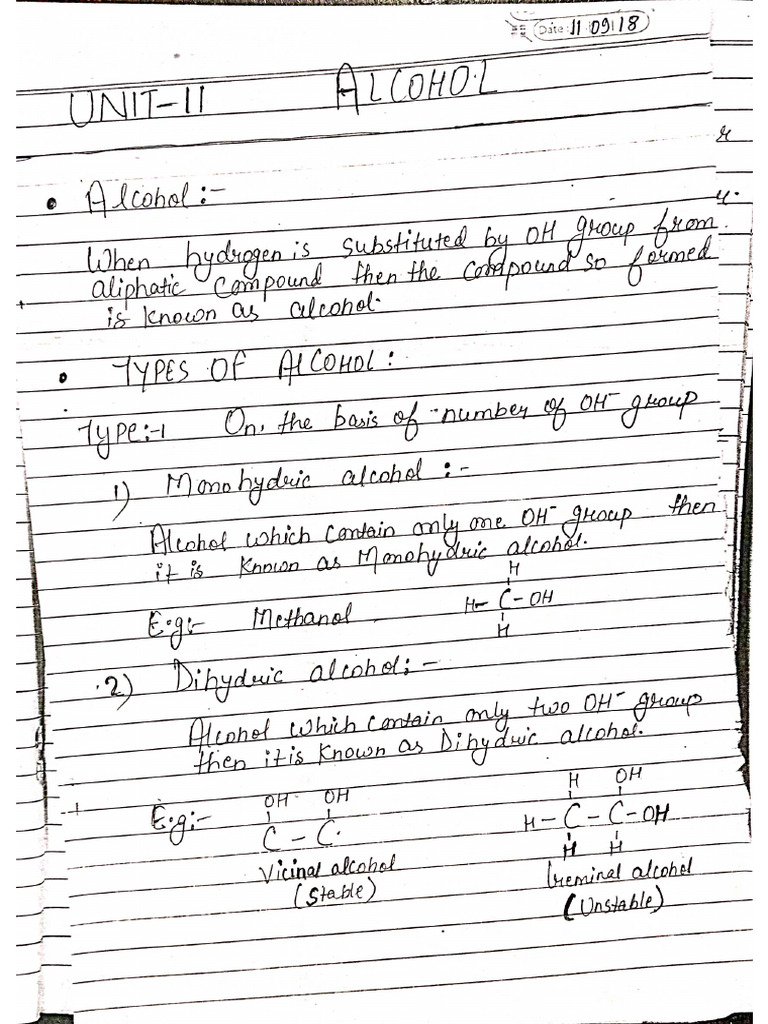 Date: 11 09 18
UNIT-II ALCOHOL
• Alcohol :-
When hydrogen is substituted by OH group from
aliphatic compound then the compound so formed
is known as alcohol.
• TYPES OF AlCOHOL :
Type:-1 On the basis of number of OH⁻ group
1) Monohydric alcohol :-
Alcohol which contain only one OH⁻ group then
it is known as Monohydric alcohol.
H
E.g:- Methanol H-C-OH
H
2) Dihydric alcohol :-
Alcohol which contain only two OH⁻ group
then it is known as Dihydric alcohol.
OH OH H OH
E.g:- C - C H - C - C - OH
H H
Vicinal alcohol Geminal alcohol
(Stable) (Unstable)